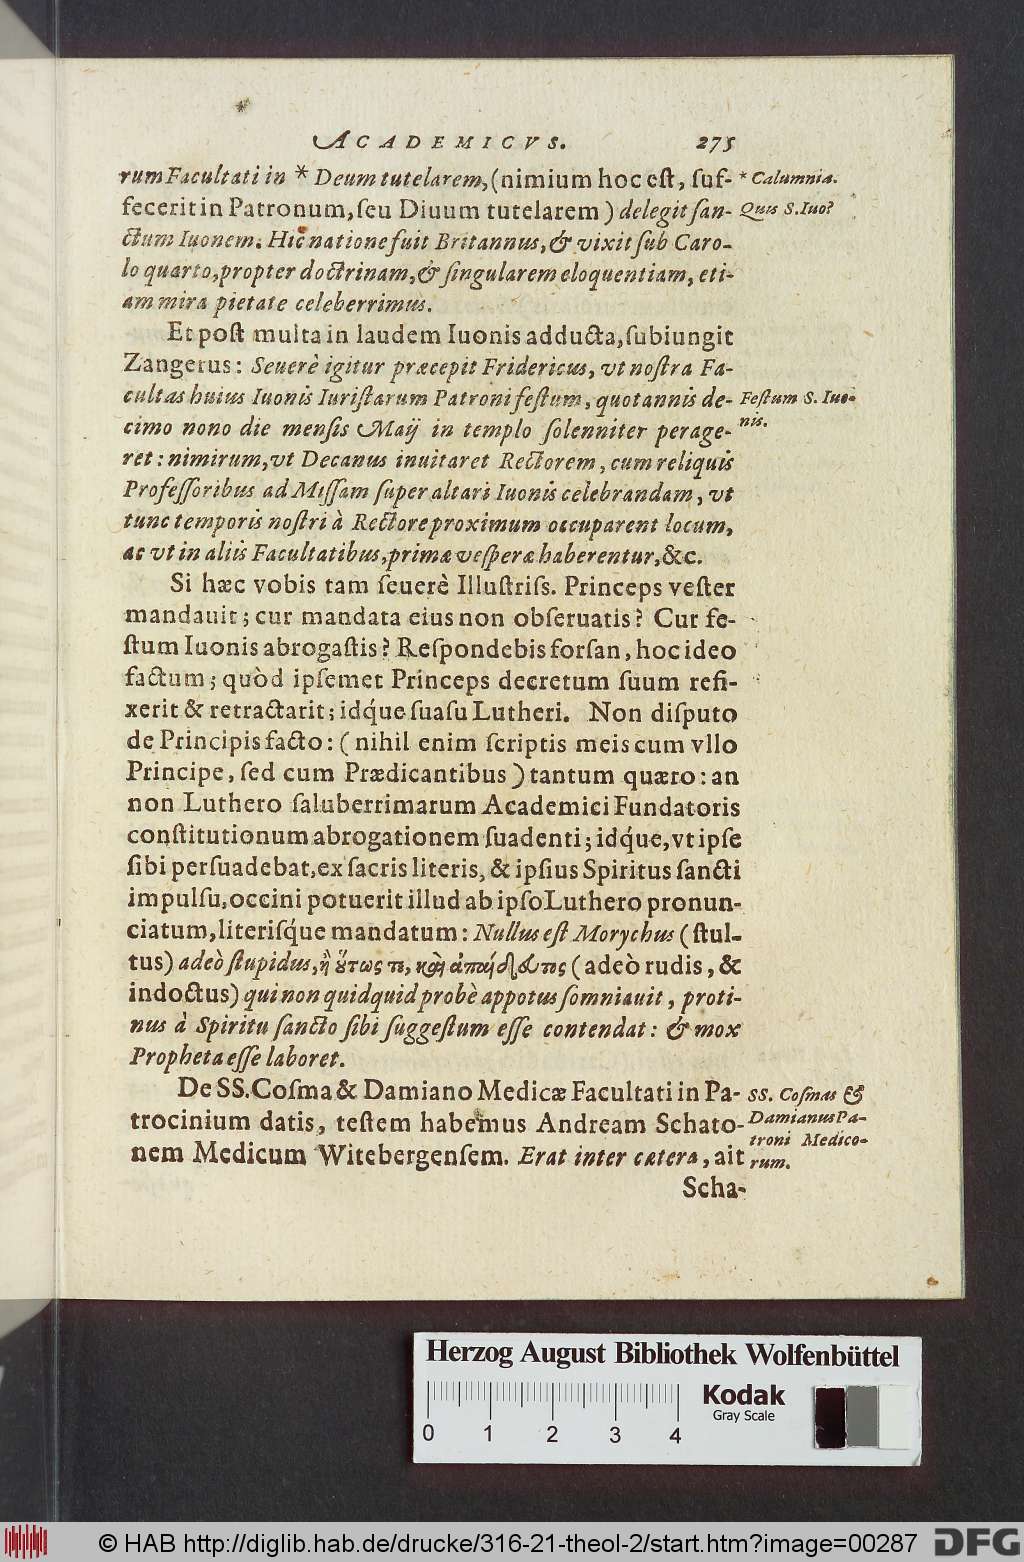 ACADEMICVS. 275
rum Facultati in * Deum tutelarem, (nimium hoc est, suf-
fecerit in Patronum, seu Diuum tutelarem) delegit san-
ctum Iuonem. Hic natione fuit Britannus, & vixit sub Caro-
lo quarto, propter doctrinam, & singularem eloquentiam, eti-
am mira pietate celeberrimus.
* Calumnia.
Quis S. Iuo?
Et post multa in laudem Iuonis adducta, subiungit
Zangerus: Seuerè igitur præcepit Fridericus, vt nostra Fa-
cultas huius Iuonis Iuristarum Patroni festum, quotannis de-
cimo nono die mensis Maij in templo solenniter perage-
ret: nimirum, vt Decanus inuitaret Rectorem, cum reliquis
Professoribus ad Missam super altari Iuonis celebrandam, vt
tunc temporis nostri à Rectore proximum occuparent locum,
ac vt in aliis Facultatibus, primæ vesperæ haberentur, &c.
Festum S. Iuo-
nis.
Si hæc vobis tam seuerè Illustriss. Princeps vester
mandauit; cur mandata eius non obseruatis? Cur fe-
stum Iuonis abrogastis? Respondebis forsan, hoc ideo
factum; quòd ipsemet Princeps decretum suum refi-
xerit & retractarit; idq́ue suasu Lutheri. Non disputo
de Principis facto: (nihil enim scriptis meis cum vllo
Principe, sed cum Prædicantibus) tantum quæro: an
non Luthero saluberrimarum Academici Fundatoris
constitutionum abrogationem suadenti; idq́ue, vt ipse
sibi persuadebat, ex sacris literis, & ipsius Spiritus sancti
impulsu, occini potuerit illud ab ipso Luthero pronun-
ciatum, literisq́ue mandatum: Nullus est Morychus (stul-
tus) adeò stupidus, ἢ ὅτως τις, καὶ ἀπαίδευτος (adeò rudis, &
indoctus) qui non quidquid probè appotus somniauit, proti-
nus à Spiritu sancto sibi suggestum esse contendat: & mox
Propheta esse laboret.
De SS. Cosma & Damiano Medicæ Facultati in Pa-
trocinium datis, testem habemus Andream Schato-
nem Medicum Witebergensem. Erat inter cætera, ait
SS. Cosmas &
Damianus Pa-
troni Medico-
rum.
Scha-
Herzog August Bibliothek Wolfenbüttel
0 1 2 3 4
Kodak
Gray Scale
© HAB http://diglib.hab.de/drucke/316-21-theol-2/start.htm?image=00287
DFG